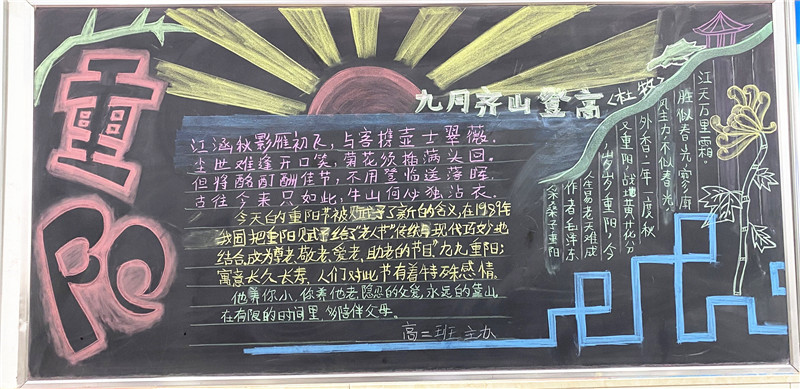 重阳
九月齐山登高
<杜牧>
江涵秋影雁初飞,与客携壶士翠薇.
尘世难逢开口笑,菊花须插满头回.
但将酩酊酬佳节,不用登临送落晖.
古往今来只如此,牛山何必独沾衣.
今天的重阳节被赋予了新的含义,在1989年
我国把重阳
结合成为尊老、敬老、爱老、助老的节日."九九重阳;
寓意长久长寿.人们对此节有着特殊感情.
他养你小,你养他老,隐忍的父爱,永远的靠山
在有限的时间里,多陪伴父母。
高二班 主办
江天万里霜。
胜似春光,寥廓
风主力,不似春光,
外香.一年一度秋
又重阳,战地黄花分
,岁岁重阳,今
人生易老天难成
作者毛泽东
采桑子重阳